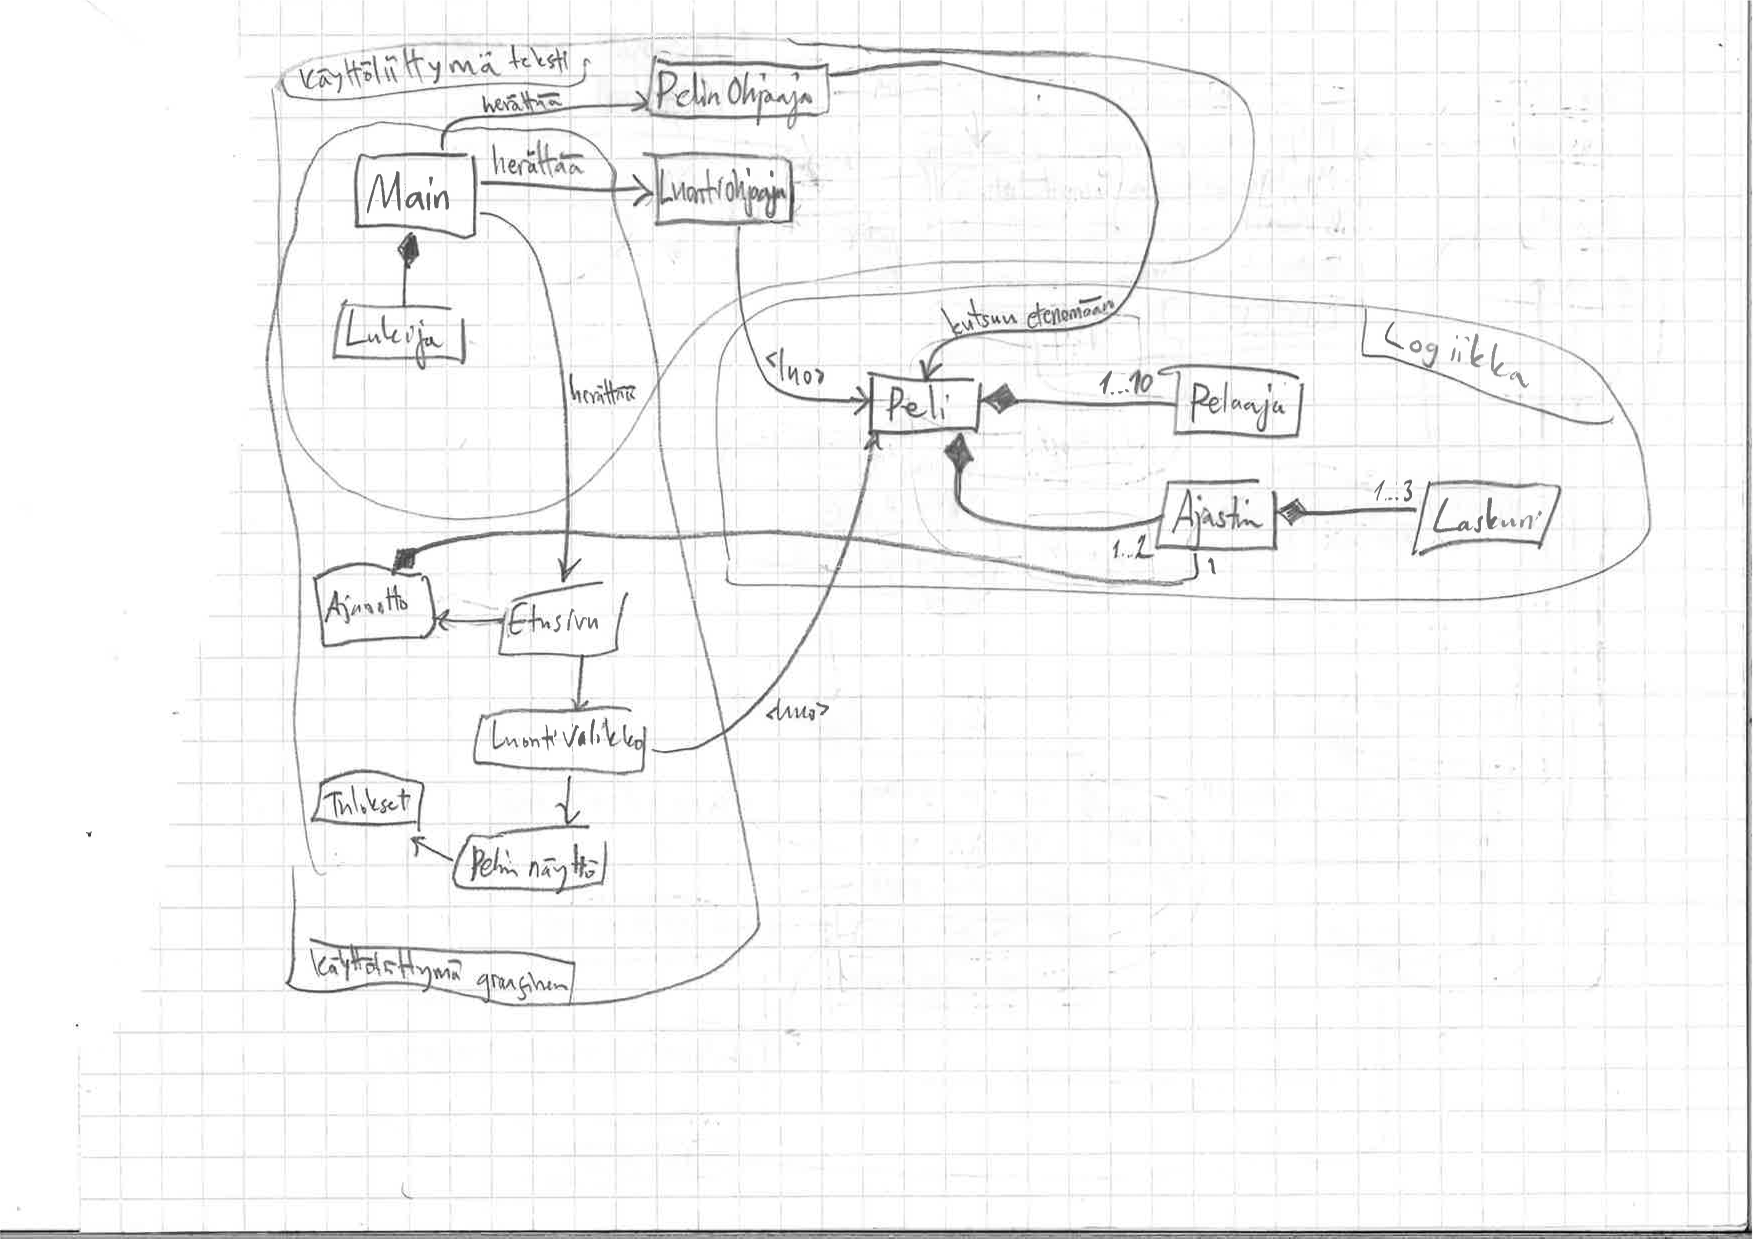 Käyttöliittymä teksti
Pelin Ohjaaja
herättää
Main
herättää
Luontiohjaaja
Lukija
herättää
kutsuu etenemään
Logiikka
<luo>
Peli
1...10
Pelaaja
Ajastin
1...3
Laskuri
1...2
1
Ajanotto
Etusivu
Luontivalikko
<luo>
Tulokset
Pelin näyttö
Käyttöliittymä graafinen